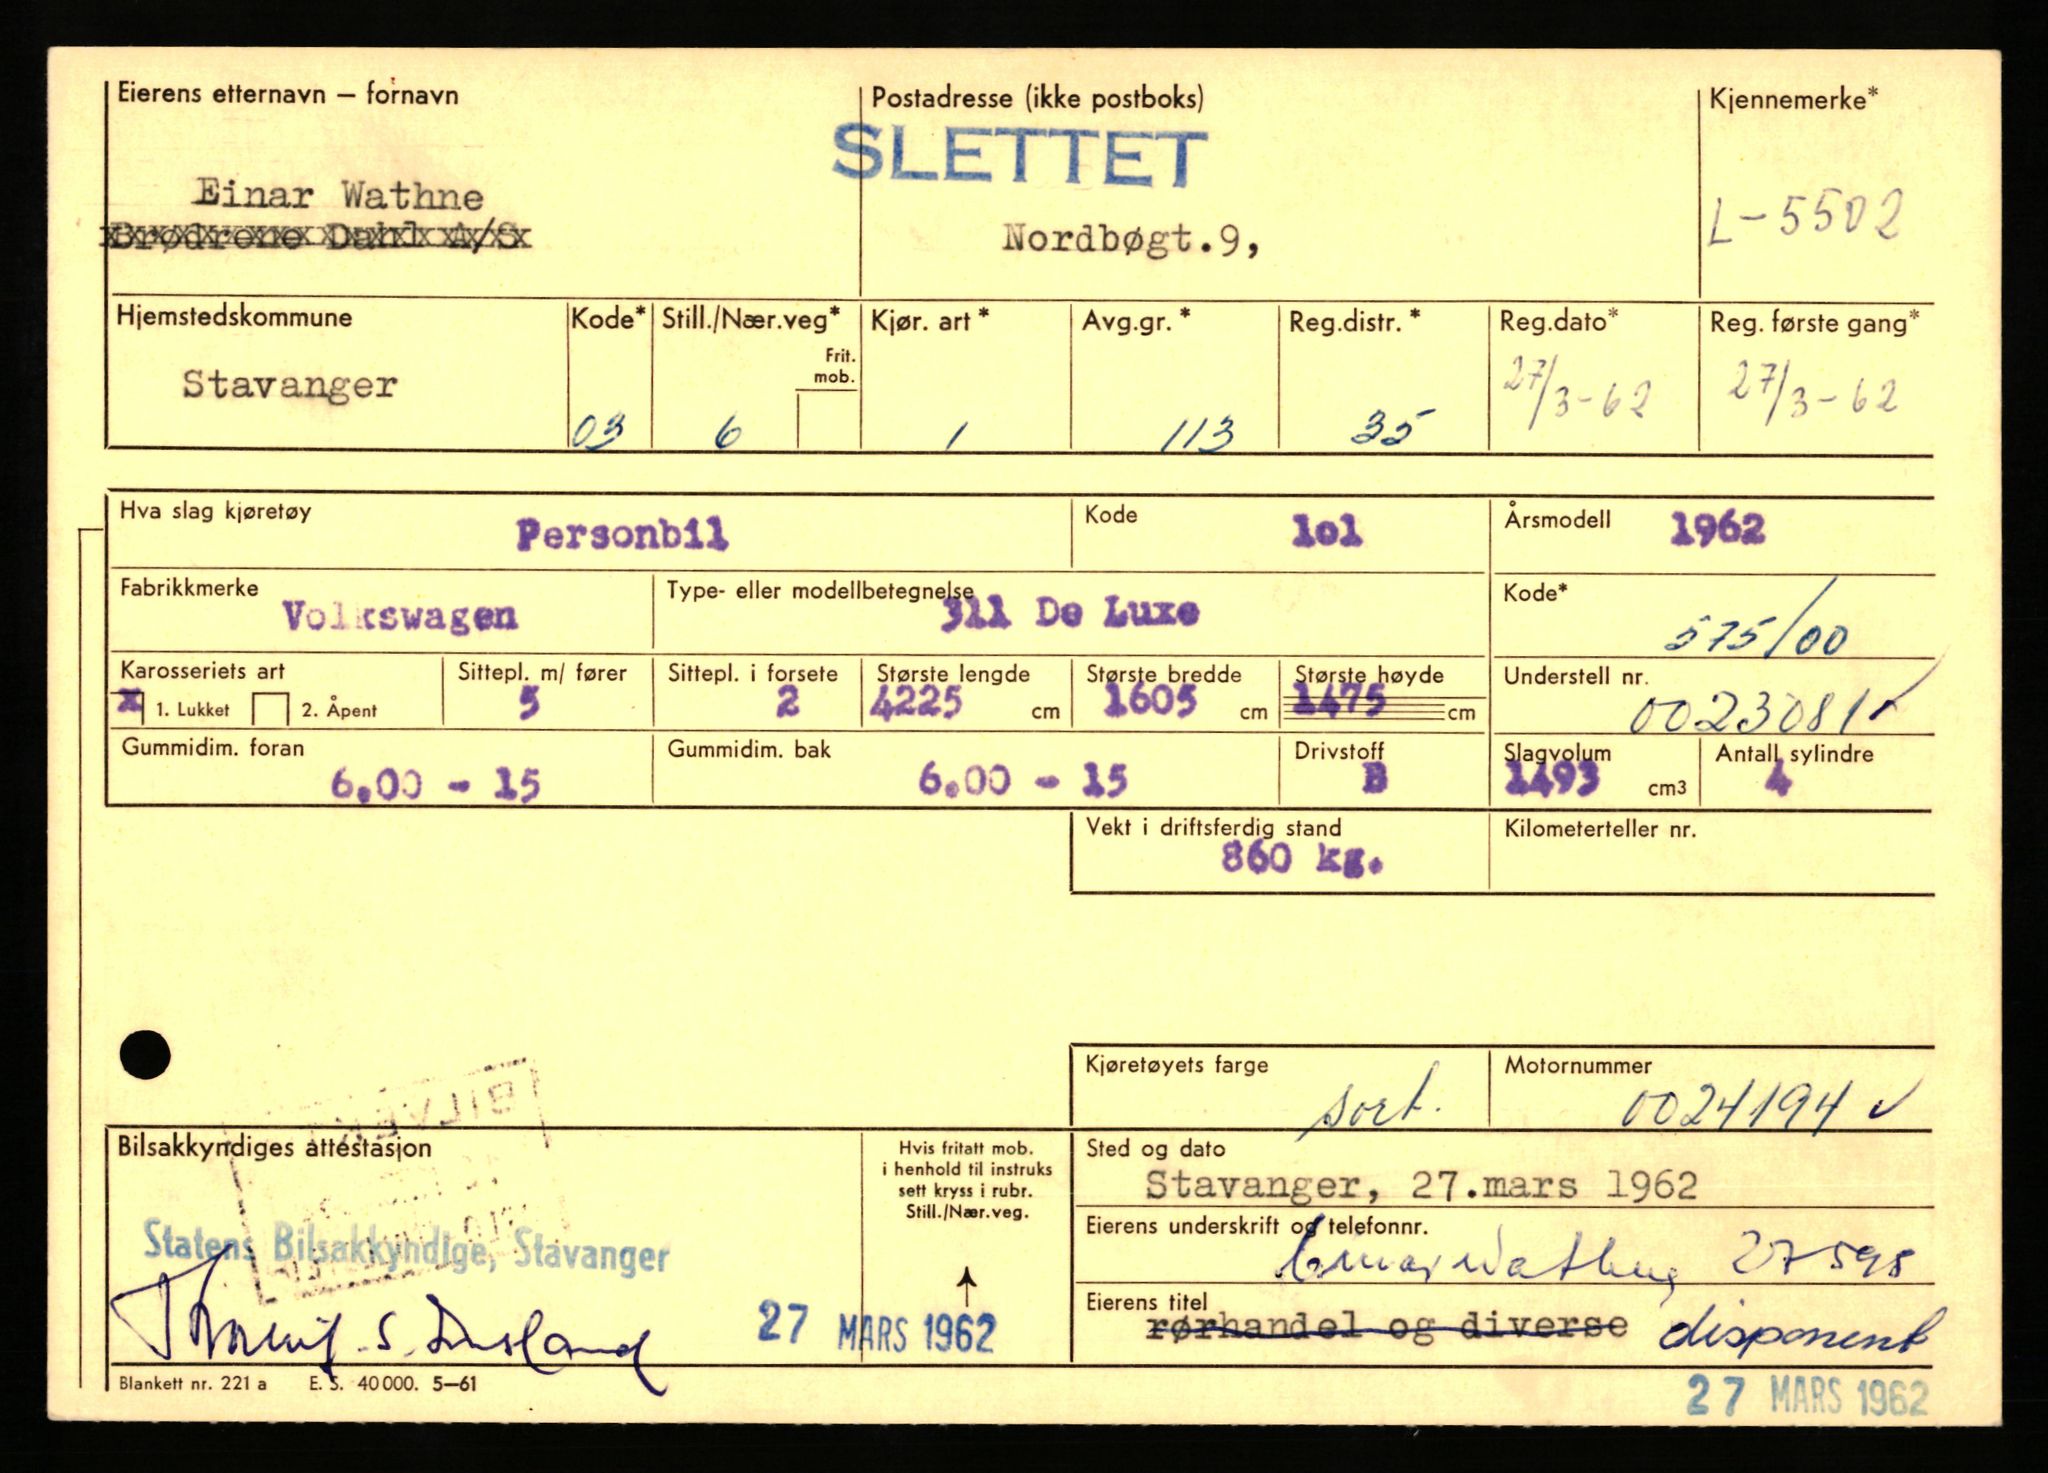 Eierens etternavn – fornavn
Postadresse (ikke postboks)
Kjennemerke*
SLETTET
Einar Wathne
Brødrene Dahl A/S
Nordbøgt.9,
L-5502
Hjemstedskommune
Kode*
Still./Nær.veg*
Frit. mob.
Kjør. art *
Avg.gr. *
Reg.distr. *
Reg.dato*
Reg. første gang*
Stavanger
03
6
1
113
35
27/3-62
27/3-62
Hva slag kjøretøy
Personbil
Kode
1o1
Årsmodell
1962
Fabrikkmerke
Volkswagen
Type- eller modellbetegnelse
311 De Luxe
Kode*
575/00
Karosseriets art
x 1. Lukket
2. Åpent
Sittepl. m/ fører
5
Sittepl. i forsete
2
Største lengde
4225 cm
Største bredde
1605 cm
Største høyde
1475 cm
Understell nr.
0023081 ✓
Gummidim. foran
6.00 - 15
Gummidim. bak
6.00 - 15
Drivstoff
B
Slagvolum
1493 cm3
Antall sylindre
4
Vekt i driftsferdig stand
860 kg.
Kilometerteller nr.
Kjøretøyets farge
sort.
Motornummer
0024194 ✓
Bilsakkyndiges attestasjon
Statens Bilsakkyndige, Stavanger
27 MARS 1962
Hvis fritatt mob.
i henhold til instruks
sett kryss i rubr.
Still./Nær.veg.
Sted og dato
Stavanger, 27.mars 1962
Eierens underskrift og telefonnr.
Einar Wathne 27595
Eierens titel
rørhandel og diverse disponent
Blankett nr. 221 a E. S. 40 000. 5–61
27 MARS 1962